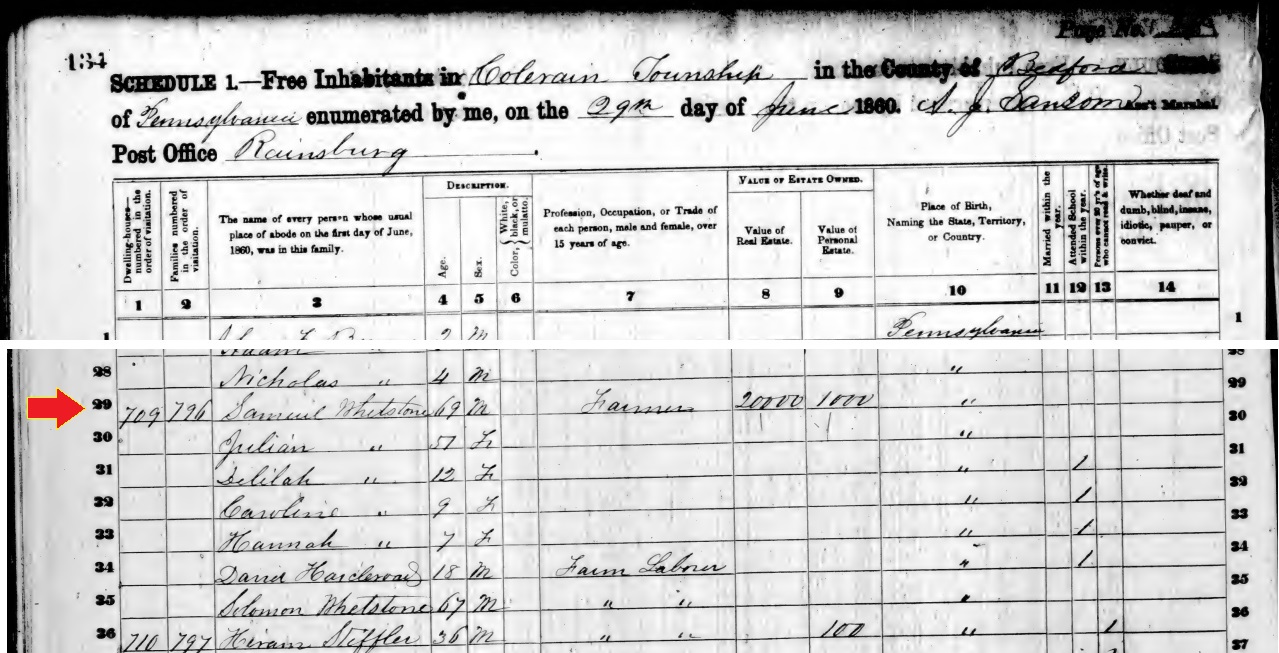 134
SCHEDULE 1.—Free Inhabitants in Colerain Township in the County of Bedford
of Pennsylvania enumerated by me, on the 29th day of June 1860. A. J. Sansom Ass't Marshal
Post Office Rainsburg
DESCRIPTION. VALUE OF ESTATE OWNED.
Dwelling-houses—numbered in the order of visitation.
Families numbered in the order of visitation.
The name of every person whose usual
place of abode on the first day of June,
1860, was in this family.
Age.
Sex.
Color, { White, black, or mulatto.
Profession, Occupation, or Trade of
each person, male and female, over
15 years of age.
Value of
Real Estate.
Value of
Personal
Estate.
Place of Birth,
Naming the State, Territory,
or Country.
Married within the year.
Attended School within the year.
Persons over 20 y'rs of age who cannot read & write.
Whether deaf and
dumb, blind, insane,
idiotic, pauper, or
convict.
1 2 3 4 5 6 7 8 9 10 11 12 13 14
1 2 M Pennsylvania 1
Adam "
28 Nicholas " 4 M " 29
29 709 796 Samuel Whetstone 69 M Farmer 20000 1000 " 30
30 Julian " 51 F " 31
31 Delilah " 12 F " 1 32
32 Caroline " 9 F " 1 33
33 Hannah " 7 F " 1 34
34 David Hardleroad 18 M Farm Laborer " 1 35
35 Solomon Whetstone 67 M " " " 36
36 710 797 Hiram Stiffler 36 M " " 100 " 1 37